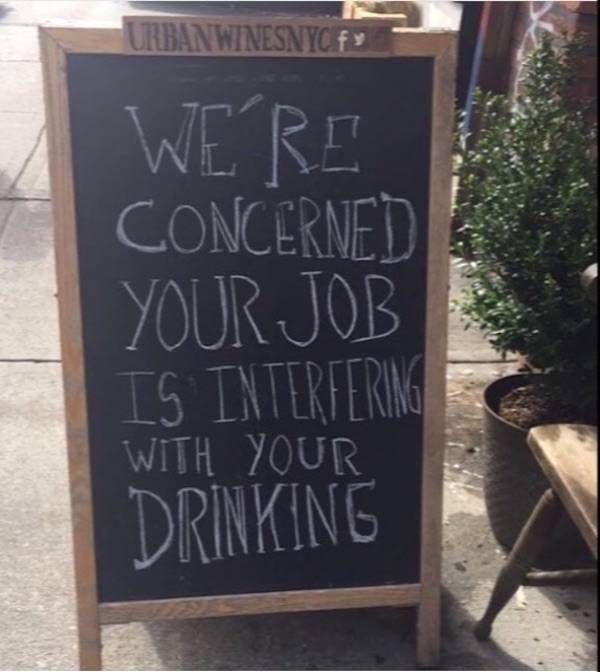 URBANWINESNYC f
WE'RE
CONCERNED
YOUR JOB
IS INTERFERING
WITH YOUR
DRINKING